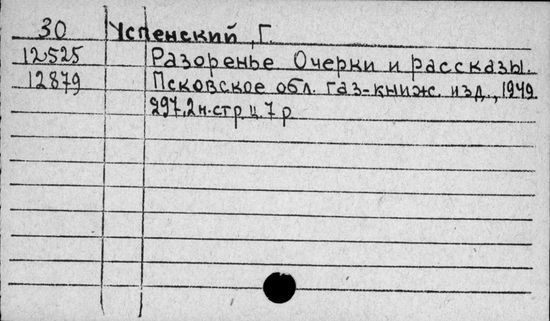 30 Успенский, Г.
12525 Разоренье Очерки и рассказы.
12879 Псковское обл. газ-книж. изд., 1949
297,2н.стр ц. 7 р